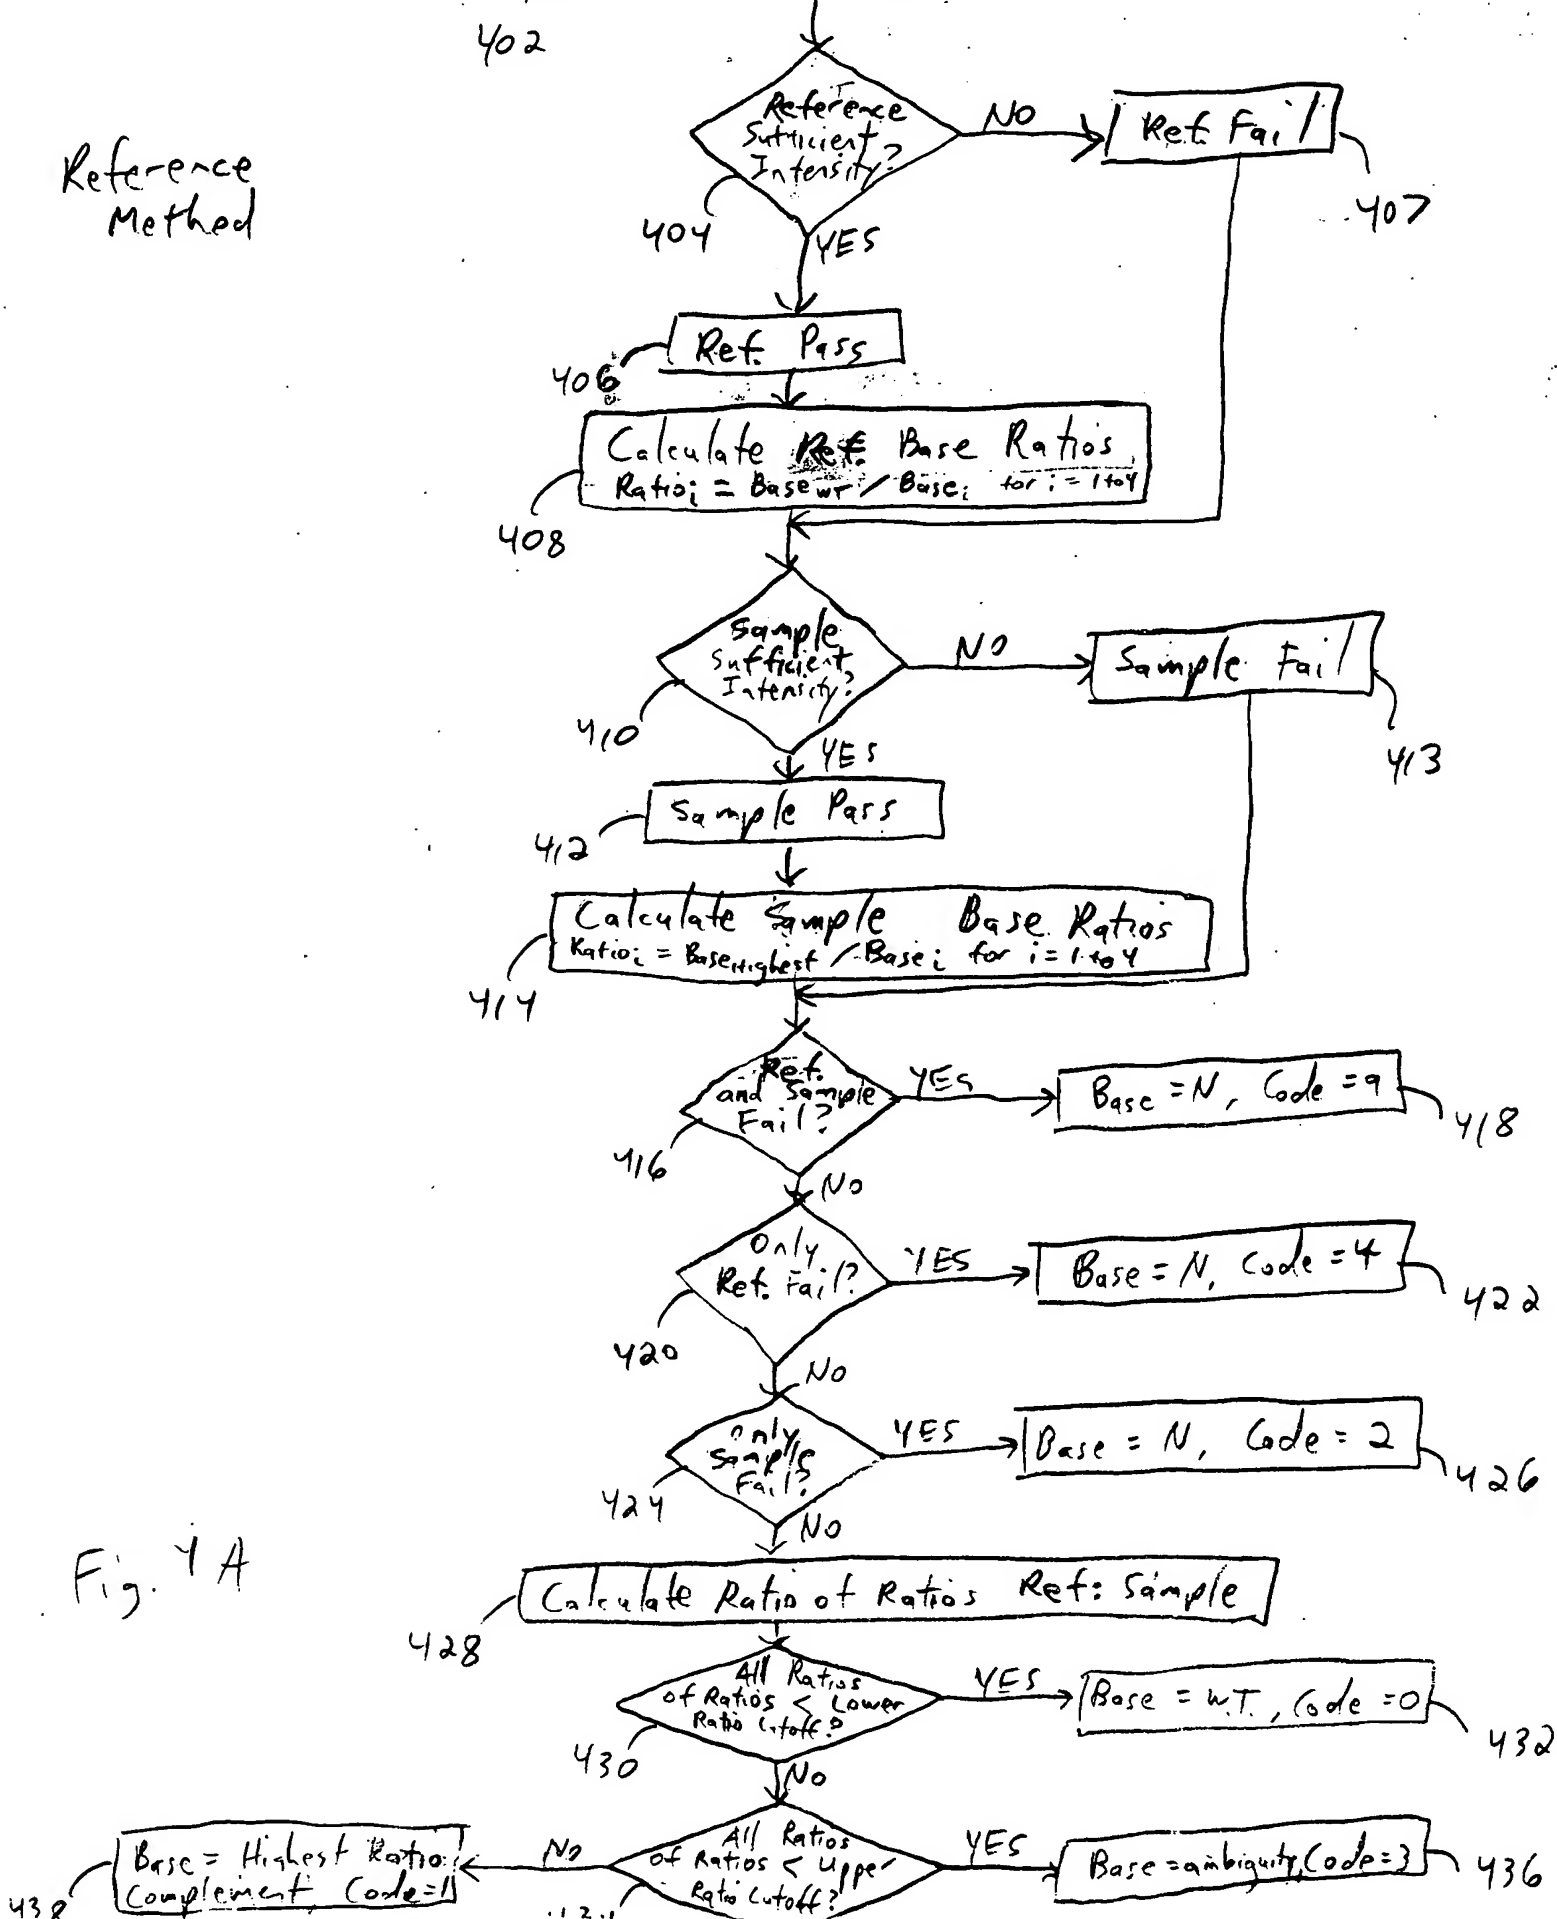 402
Reference
Sufficient
Intensity?
NO
Ref. Fail
407
Reference
Method
404
YES
Ref. Pass
406
Calculate Ref. Base Ratios
Ratioi = BaseWT / Basei for i = 1 to 4
408
Sample
Sufficient
Intensity?
NO
Sample Fail
410
413
YES
Sample Pass
412
Calculate Sample Base Ratios
Ratioi = BaseHighest / Basei for i = 1 to 4
414
Ref.
and Sample
Fail?
YES
Base = N, Code = 9
418
416
NO
Only
Ref. Fail?
YES
Base = N, Code = 4
422
420
NO
Only
Sample
Fail?
YES
Base = N, Code = 2
426
424
NO
Fig. 4A
Calculate Ratio of Ratios Ref: Sample
428
All Ratios
of Ratios < Lower
Ratio Cutoff?
YES
Base = W.T., Code = 0
432
430
NO
All Ratios
of Ratios < Upper
Ratio Cutoff?
YES
Base = ambiguity, Code = 3
436
NO
Base = Highest Ratio
Complement, Code = 1
438